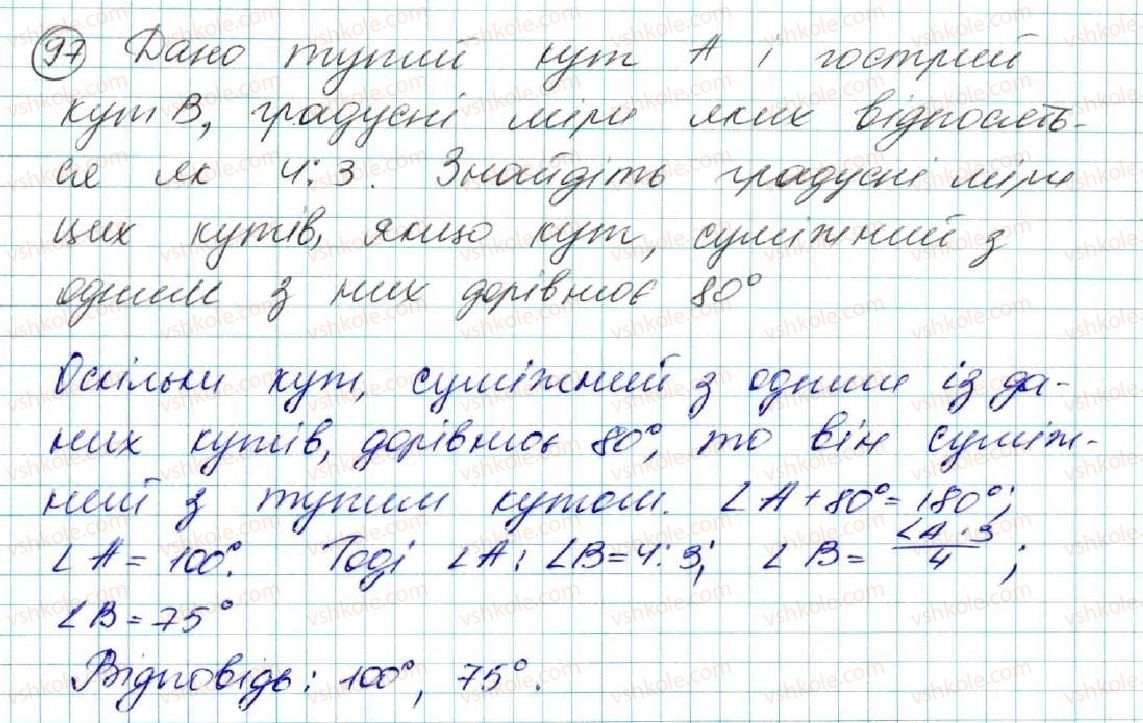 97 Дано тупий кут A і гострий
кут B, градусні міри яких відносять-
ся як 4:3. Знайдіть градусні міри
цих кутів, якщо кут, суміжний з
одним з них дорівнює 80°
Оскільки кут, суміжний з одним із да-
них кутів, дорівнює 80°, то він суміж-
ний з тупим кутом. ∠A + 80° = 180°;
∠A = 100°. Тоді ∠A : ∠B = 4 : 3; ∠B = ∠A · 3 / 4 ;
∠B = 75°
Відповідь: 100°, 75°.